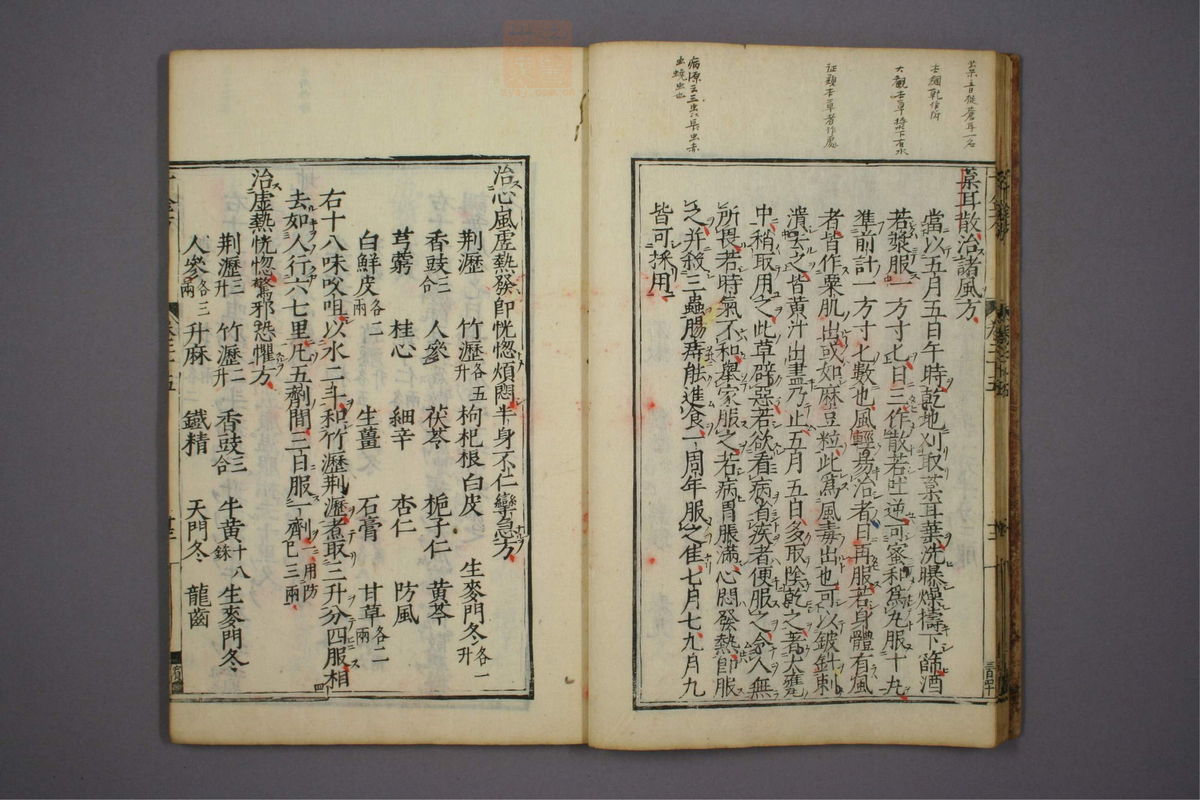 葈耳散治諸風方
當以五月五日午時乾地刈取葈耳葉洗曝燥擣下篩酒
若漿服一方寸匕日三作散若吐逆可蜜和為丸服十丸
準前計一方寸匕數也風輕易治者日再服若身體有風
者皆作粟肌出或如麻豆粒此為風毒出也可以鈹針刺
潰去之皆黃汁出盡乃止五月五日多取陰乾之著大甕
中稍取用之此草辟惡若欲看病省疾者便服之令人無
所畏若時氣不和舉家服之若病胃脹滿心悶發熱即服
之并殺三蟲腸痔能進食一周年服之佳七月七九月九
皆可採用
治心風虛熱發即恍惚煩悶半身不仁攣急方
荆瀝 竹瀝各五升 枸杞根白皮 生麥門冬各一升
香豉三合 人參 茯苓 梔子仁 黃芩
芎藭 桂心 細辛 杏仁 防風
白鮮皮各二兩 生薑 石膏 甘草各二兩
右十八味㕮咀以水二斗和竹瀝荆瀝煮取三升分四服相
去如人行六七里凡五劑間三日服一劑一用防巳三兩
治虛熱恍惚驚邪恐懼方
荆瀝三升 竹瀝二升 香豉三合 牛黃十八銖 生麥門冬
人參各三兩 升麻 鐵精 天門冬 龍齒